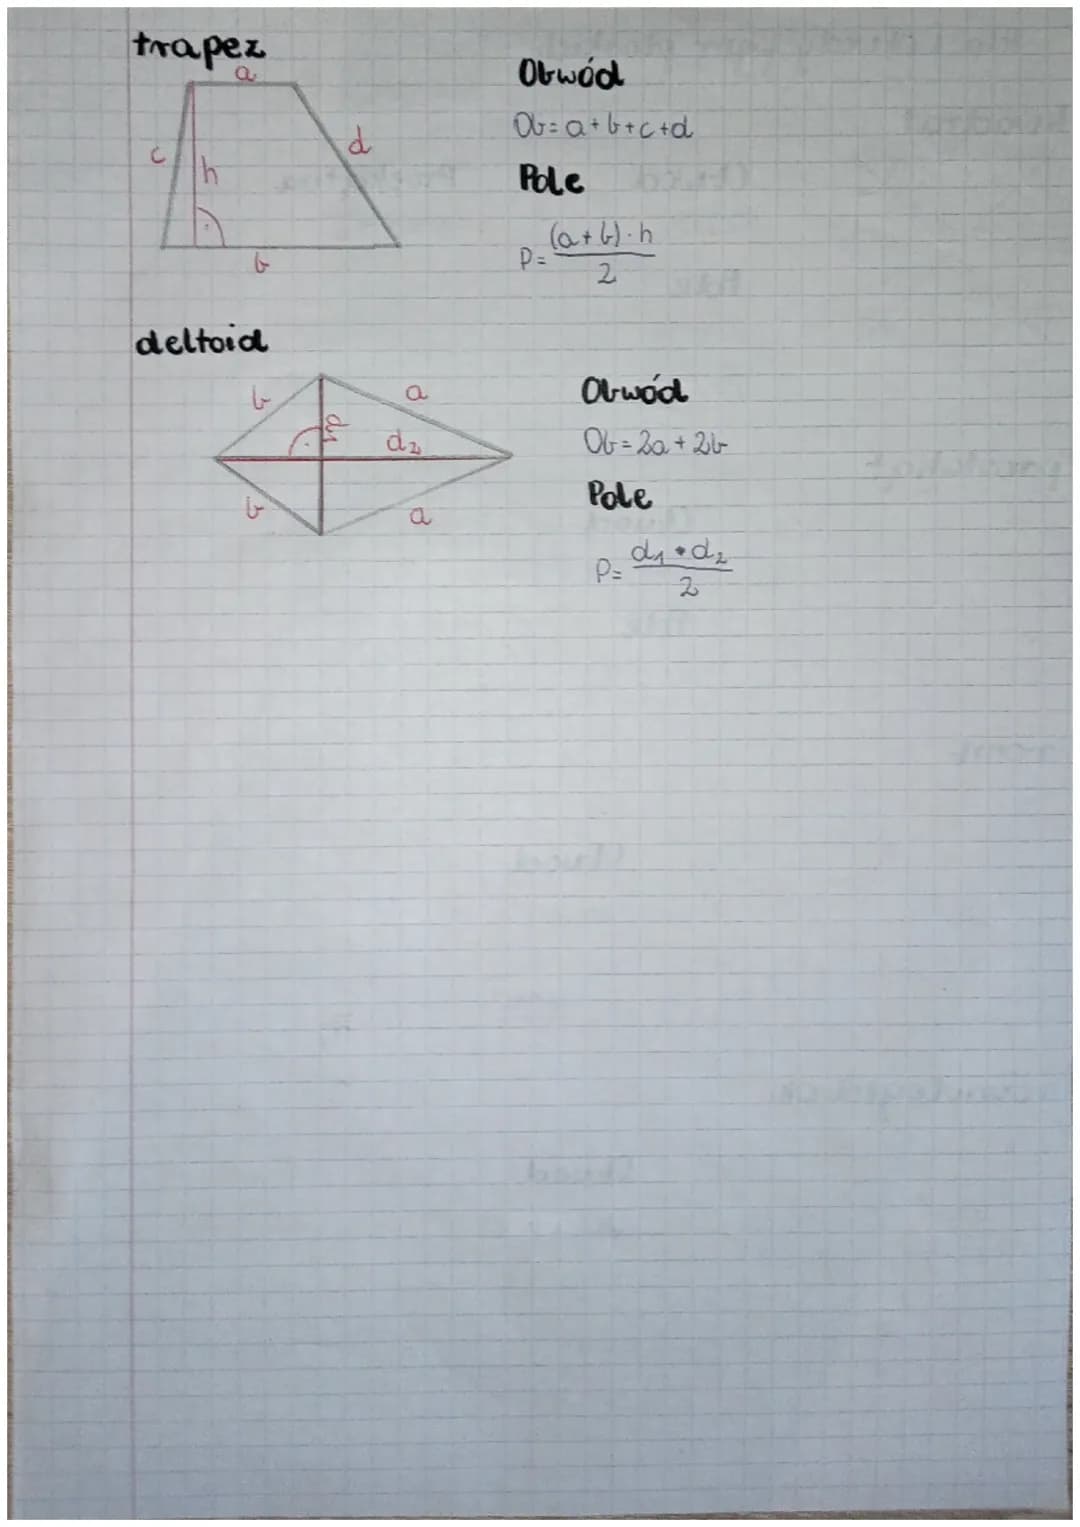 trapez
a
c
h
d
b
Obwód
Ob = a+b+c+d
Pole
P = (a+b)·h / 2
deltoid
b
a
d₁
d₂
b
a
Obwód
Ob = 2a + 2b
Pole
P = d₁ • d₂ / 2